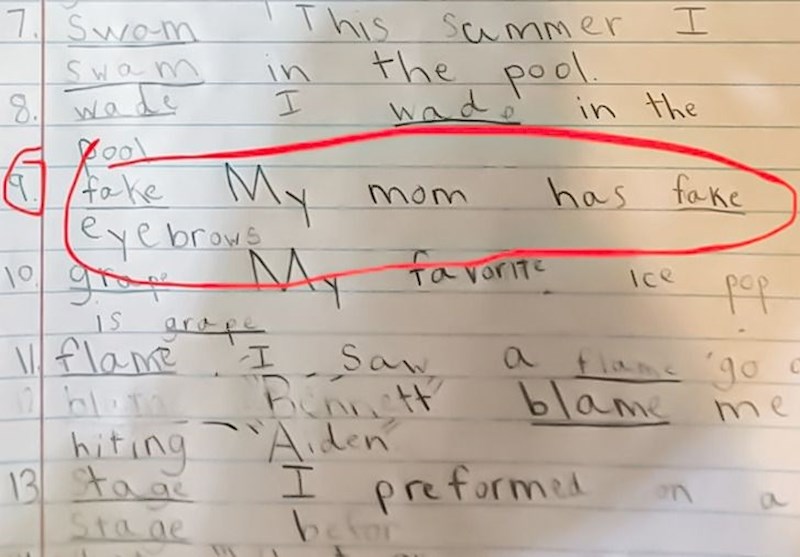 7. Swam This summer I
swam in the pool.
8. wade I wade in the
pool
9. fake My mom has fake
eyebrows
10. grape My favorite ice pop
is grape
11. flame I saw a flame go
Bennett blame me
hiting Aiden
13 Stage I preformed on a
stage befor